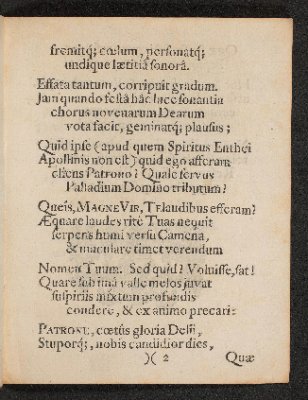 fremitq́; cœlum, personatq́;
undique lætitiâ sonorâ.
Effata tantum, corripuit gradum.
Jam quando festâ hâc luce sonantia
chorus novenarum Dearum
vota facit, geminatq́; plausus;
Quid ipse (apud quem Spiritus Enthei
Apollinis non est) quid ego afferam
cliens Patrono? Quale servus
Palladium Domino tributum?
Queis, MAGNE VIR, TE laudibus efferam?
Æquare laudes ritè Tuas nequit
serpens humi versu Camena,
& maculare timet verendum
Nomen Tuum. Sed quid? Voluisse, sat!
Quare sub imâ valle melos juvat
suspiriis mixtum profundis
condere, & ex animo precari:
PATRONE, cœtûs gloria Delii,
Stuporq́;, nobis candidior dies,
)( 2 Quæ